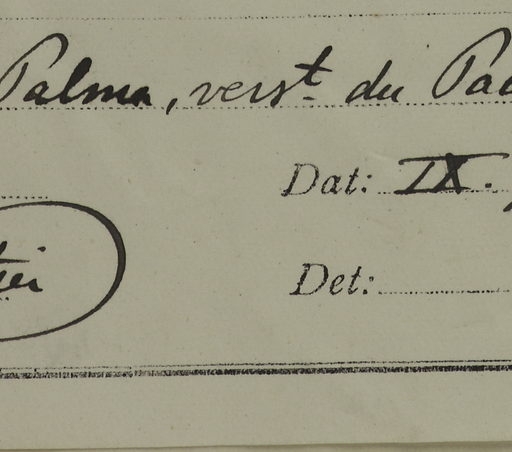 Palma, verst. du Pac
Dat: IX.
Det: